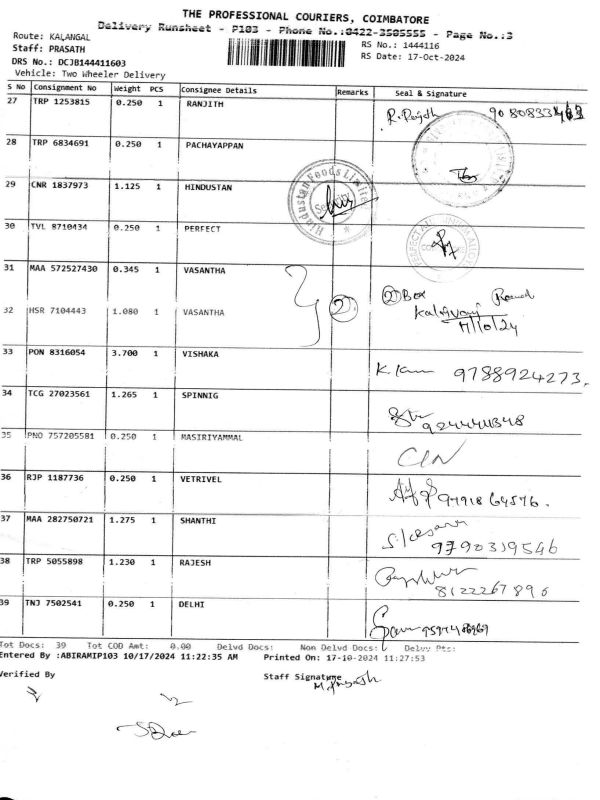 THE PROFESSIONAL COURIERS, COIMBATORE
Delivery Runsheet - P103 - Phone No.:0422-3505555 - Page No.:3
Route: KALANGAL
RS No.: 1444116
Staff: PRASATH
RS Date: 17-Oct-2024
DRS No.: DCJB144411603
Vehicle: Two Wheeler Delivery
S No Consignment No Weight PCS Consignee Details Remarks Seal & Signature
27 TRP 1253815 0.250 1 RANJITH
28 TRP 6834691 0.250 1 PACHAYAPPAN
29 CNR 1837973 1.125 1 HINDUSTAN Hindustan Foods Limited Security
30 TVL 8710434 0.250 1 PERFECT
31 MAA 572527430 0.345 1 VASANTHA
② Box
32 HSR 7104443 1.080 1 VASANTHA ②
17/10/24
33 PON 8316054 3.700 1 VISHAKA 9788924273.
34 TCG 27023561 1.265 1 SPINNIG
35 PNO 757205581 0.250 1 MASIRIYAMMAL
36 RJP 1187736 0.250 1 VETRIVEL
37 MAA 282750721 1.275 1 SHANTHI 9790319546
38 TRP 5055898 1.230 1 RAJESH 8122267896
39 TNJ 7502541 0.250 1 DELHI
Tot Docs: 39 Tot COD Amt: 0.00 Delvd Docs: Non Delvd Docs: Delvy Pts:
Entered By :ABIRAMIP103 10/17/2024 11:22:35 AM Printed On: 17-10-2024 11:27:53
Verified By Staff Signature